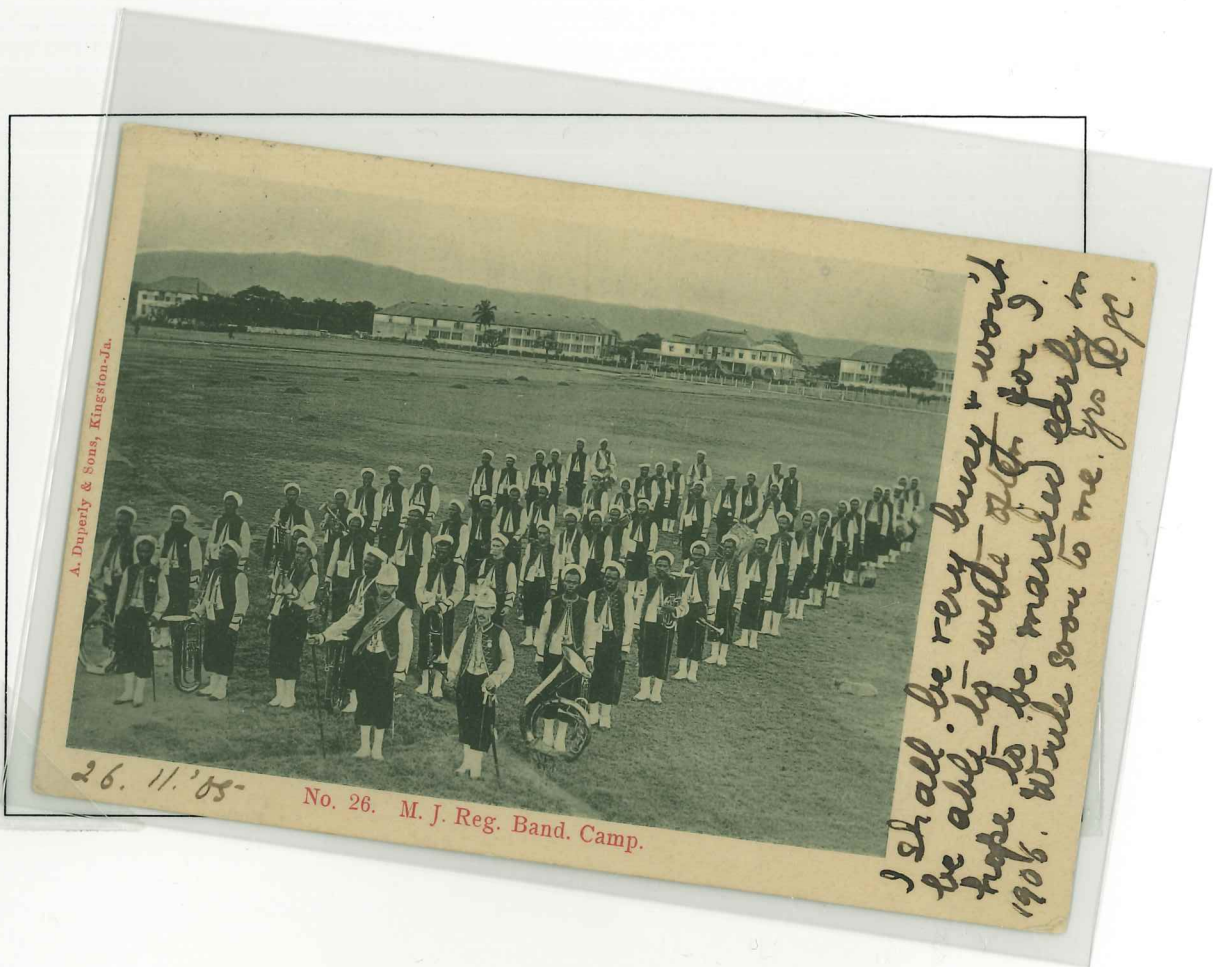 A. Duperly & Sons, Kingston-Ja.
26. 11. '05
No. 26. M. J. Reg. Band. Camp.
I shall be very busy & won't
be able to write often for I
hope to be married early in
1906. Write soon to me. Yrs